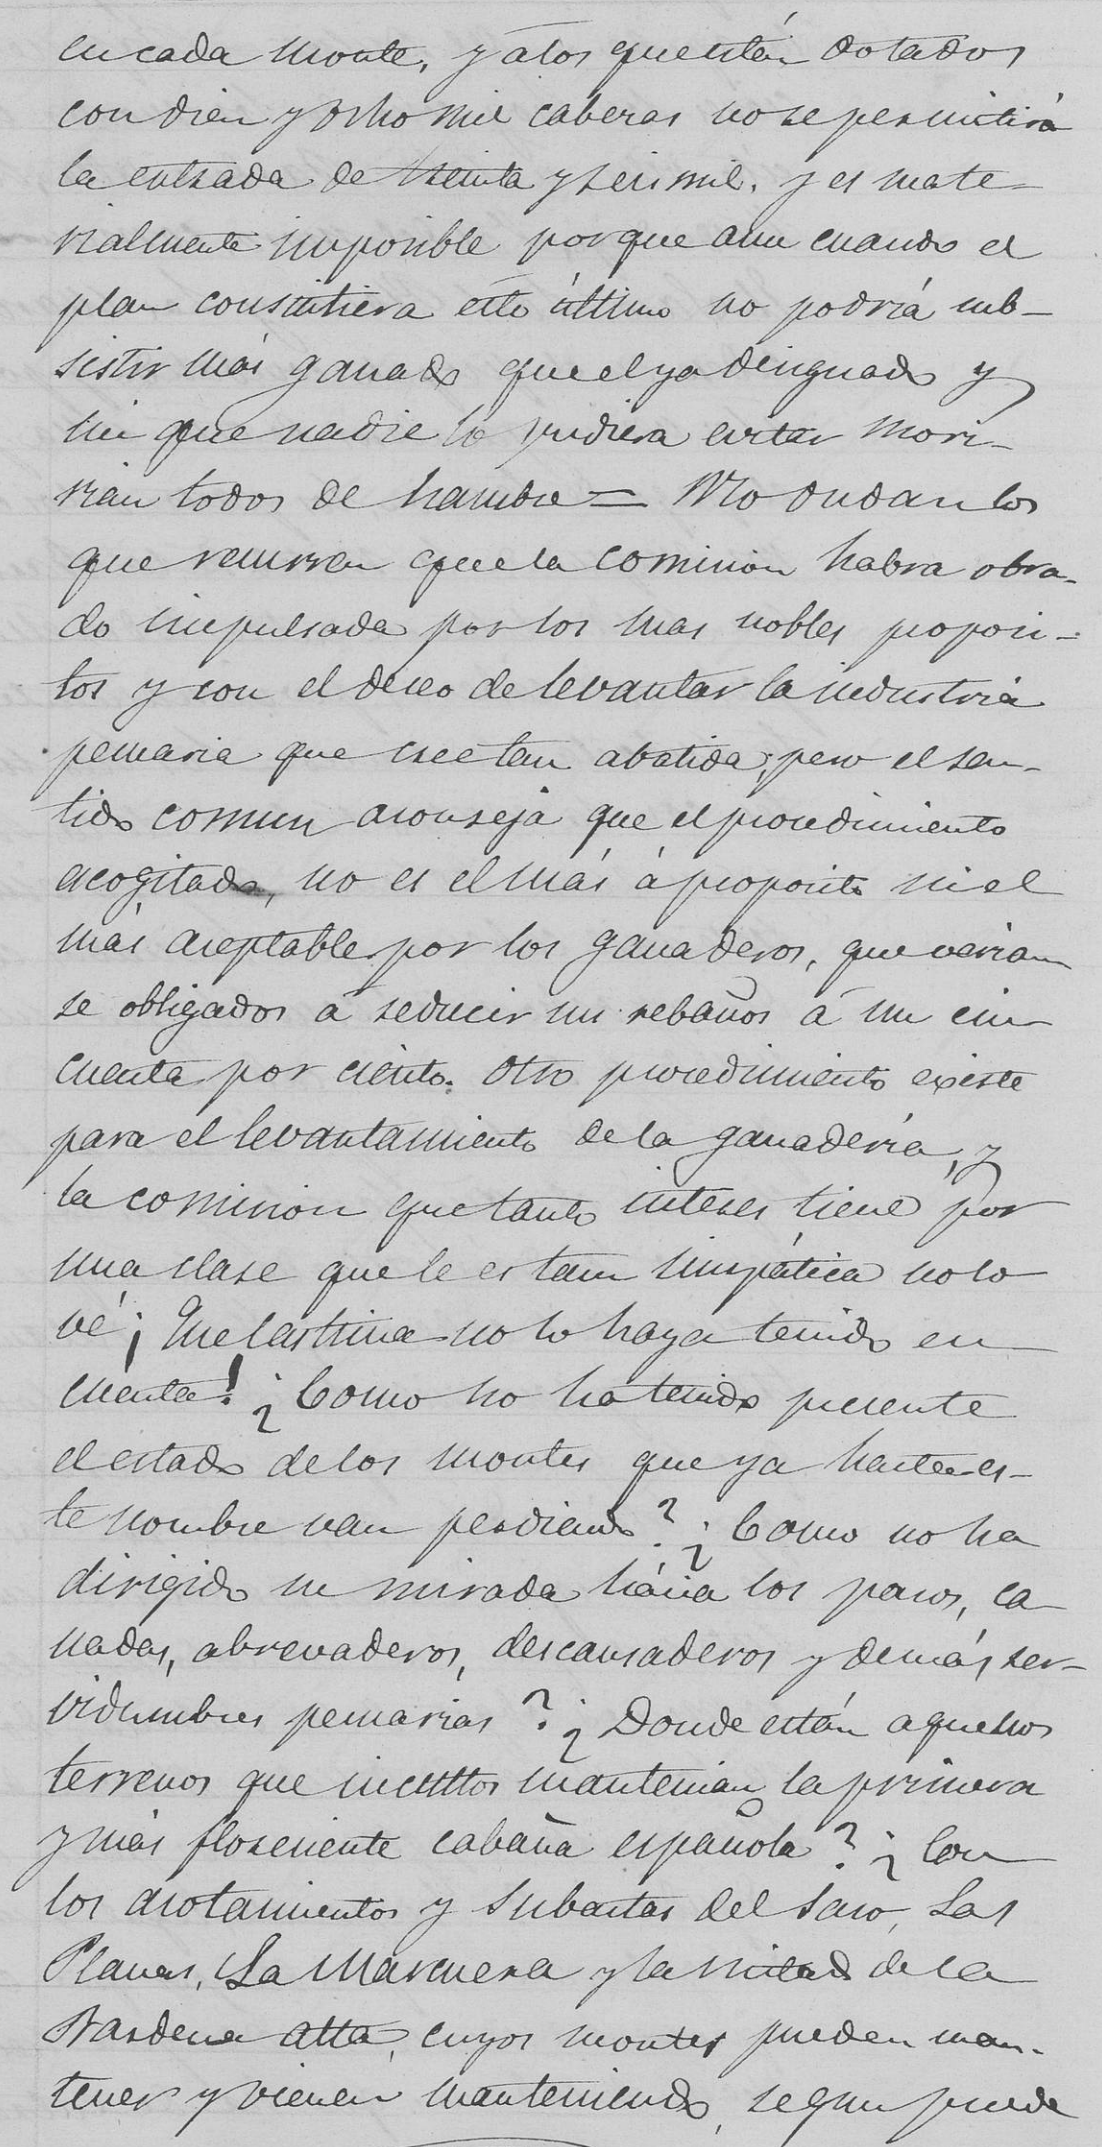 en cada monte, y á los que están dotados
con diez y ocho mil cabezas no se permitirá
la entrada de treinta y seis mil, y es mate-
rialmente imposible porque aun cuando el
plan consintiera ésto último no podría sub-
sistir más ganado que el ya designado y
sin que nadie lo pudiera evitar mori-
rian todos de hambre = No dudan los
que recurren que la comision habra obra-
do impulsada por los mas nobles proposi-
tos y con el deseo de levantar la industria
pecuaria que cree tan abatida; pero el sen-
tido comun aconseja que el procedimiento
acogitado, no es el más á proposito ni el
más aceptable por los ganaderos, que verian
se obligados á reducir sus rebaños á un cin
cuenta por ciento. Otro procedimiento existe
para el levantamiento de la ganadería, y
la comision que tanto interes tiene por
una clase que le es tan simpática no lo
vé ¡Que lastima no lo haya tenido en
cuenta! ¿Como no ha tenido presente
el estado de los montes que ya hasta es-
te nombre van perdiendo? ¿Como no ha
dirigido su mirada hácia los pasos, ca
ñadas, abrevaderos, descansaderos y demás ser-
vidumbres pecuarias? ¿Donde están aquellos
terrenos que incultos mantenian la primera
y más floreciente cabaña española? ¿Con
los acotamientos y subastas del Saso, Las
Planas, La Marcuera y la mitad de la
Bardena alta, cuyos montes pueden man-
tener y vienen manteniendo, segun puede